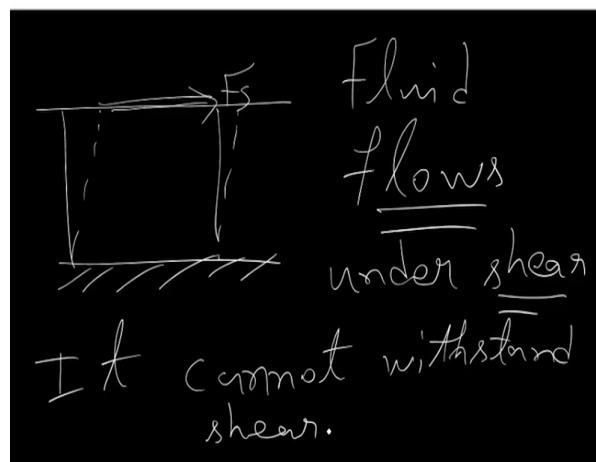 Fs
Fluid
flows
under shear
It cannot withstand
shear.